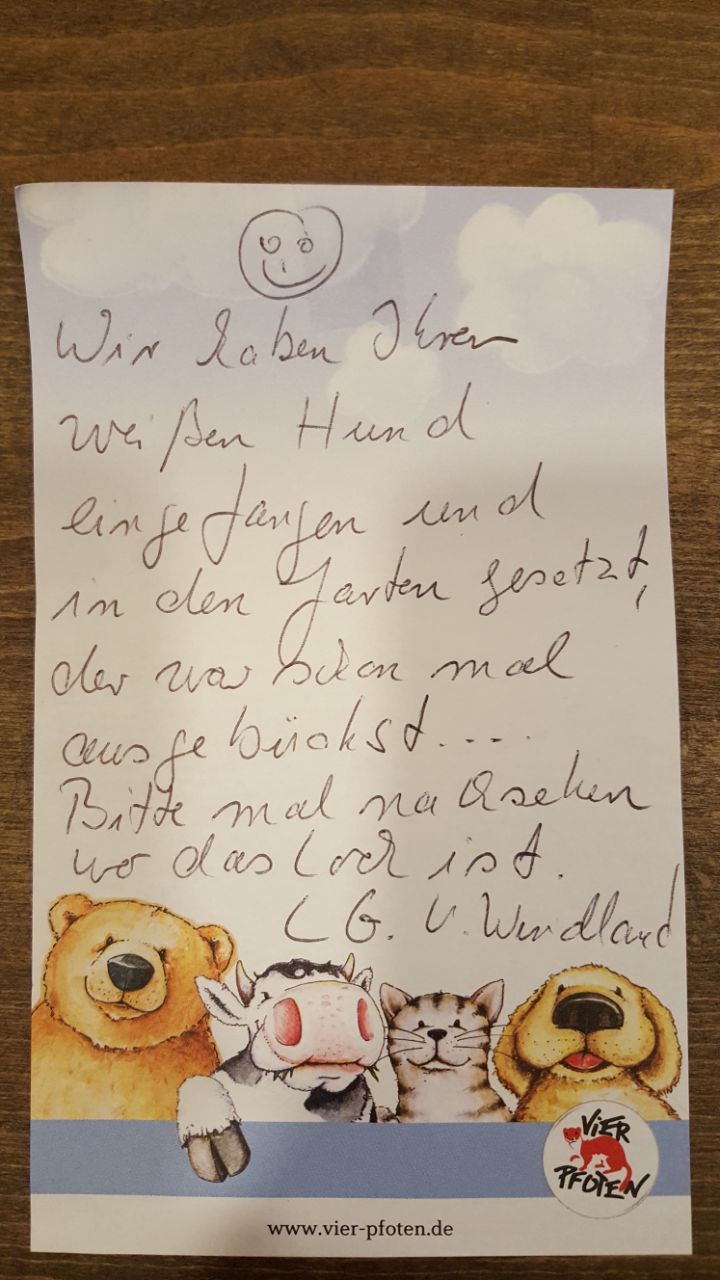 Wir haben Ihren
weißen Hund
eingefangen und
in den Garten gesetzt,
der war schon mal
ausgebückst....
Bitte mal nachsehen
wo das Loch ist.
LG. U. Wendland
VIER
PFOTEN
www.vier-pfoten.de